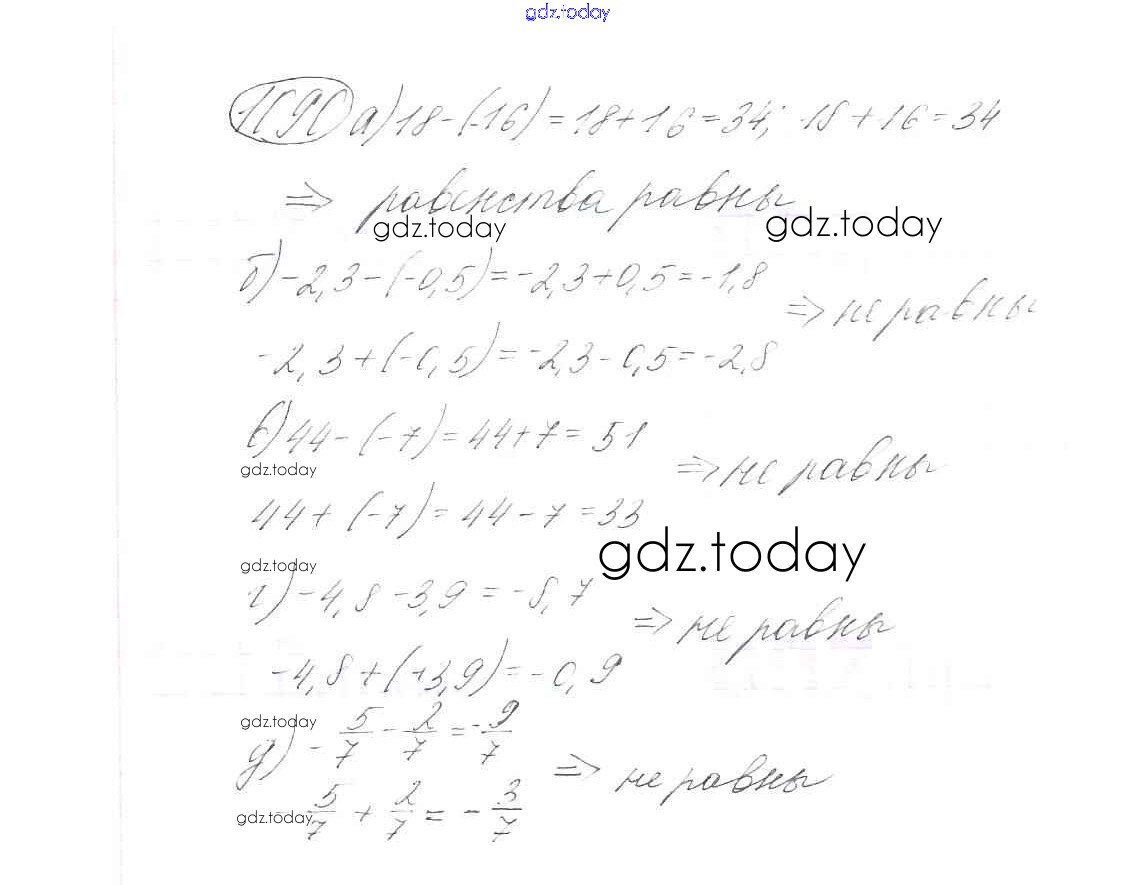 gdz.today
1090 а) 18 - (-16) = 18 + 16 = 34; 18 + 16 = 34
⇒ равенства равны
gdz.today gdz.today
б) -2,3 - (-0,5) = -2,3 + 0,5 = -1,8
⇒ не равны
-2,3 + (-0,5) = -2,3 - 0,5 = -2,8
в) 44 - (-7) = 44 + 7 = 51
gdz.today
⇒ не равны
44 + (-7) = 44 - 7 = 33
gdz.today
gdz.today
г) -4,8 - 3,9 = -8,7
⇒ не равны
-4,8 + (+3,9) = -0,9
gdz.today
д) - 5/7 - 2/7 = - 9/7
⇒ не равны
- 5/7 + 2/7 = - 3/7
gdz.today